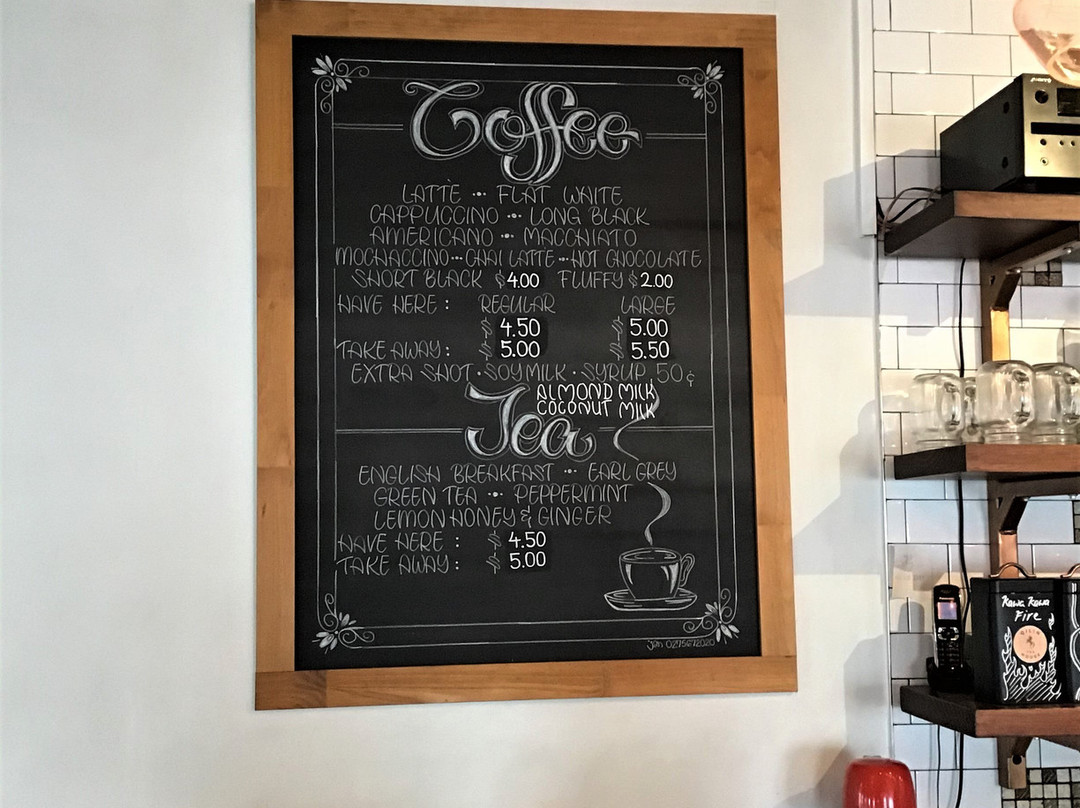 Coffee
LATTÈ • FLAT WHITE
CAPPUCCINO • LONG BLACK
AMERICANO • MACCHIATO
MOCHACCINO • CHAI LATTE • HOT CHOCOLATE
SHORT BLACK $4.00 FLUFFY $2.00
HAVE HERE : REGULAR LARGE
$ 4.50 $ 5.00
TAKE AWAY : $ 5.00 $ 5.50
EXTRA SHOT • SOY MILK • SYRUP 50¢
ALMOND MILK
COCONUT MILK
Tea
ENGLISH BREAKFAST • EARL GREY
GREEN TEA • PEPPERMINT
LEMON HONEY & GINGER
HAVE HERE : $ 4.50
TAKE AWAY : $ 5.00
Kawa Kawa
Fire